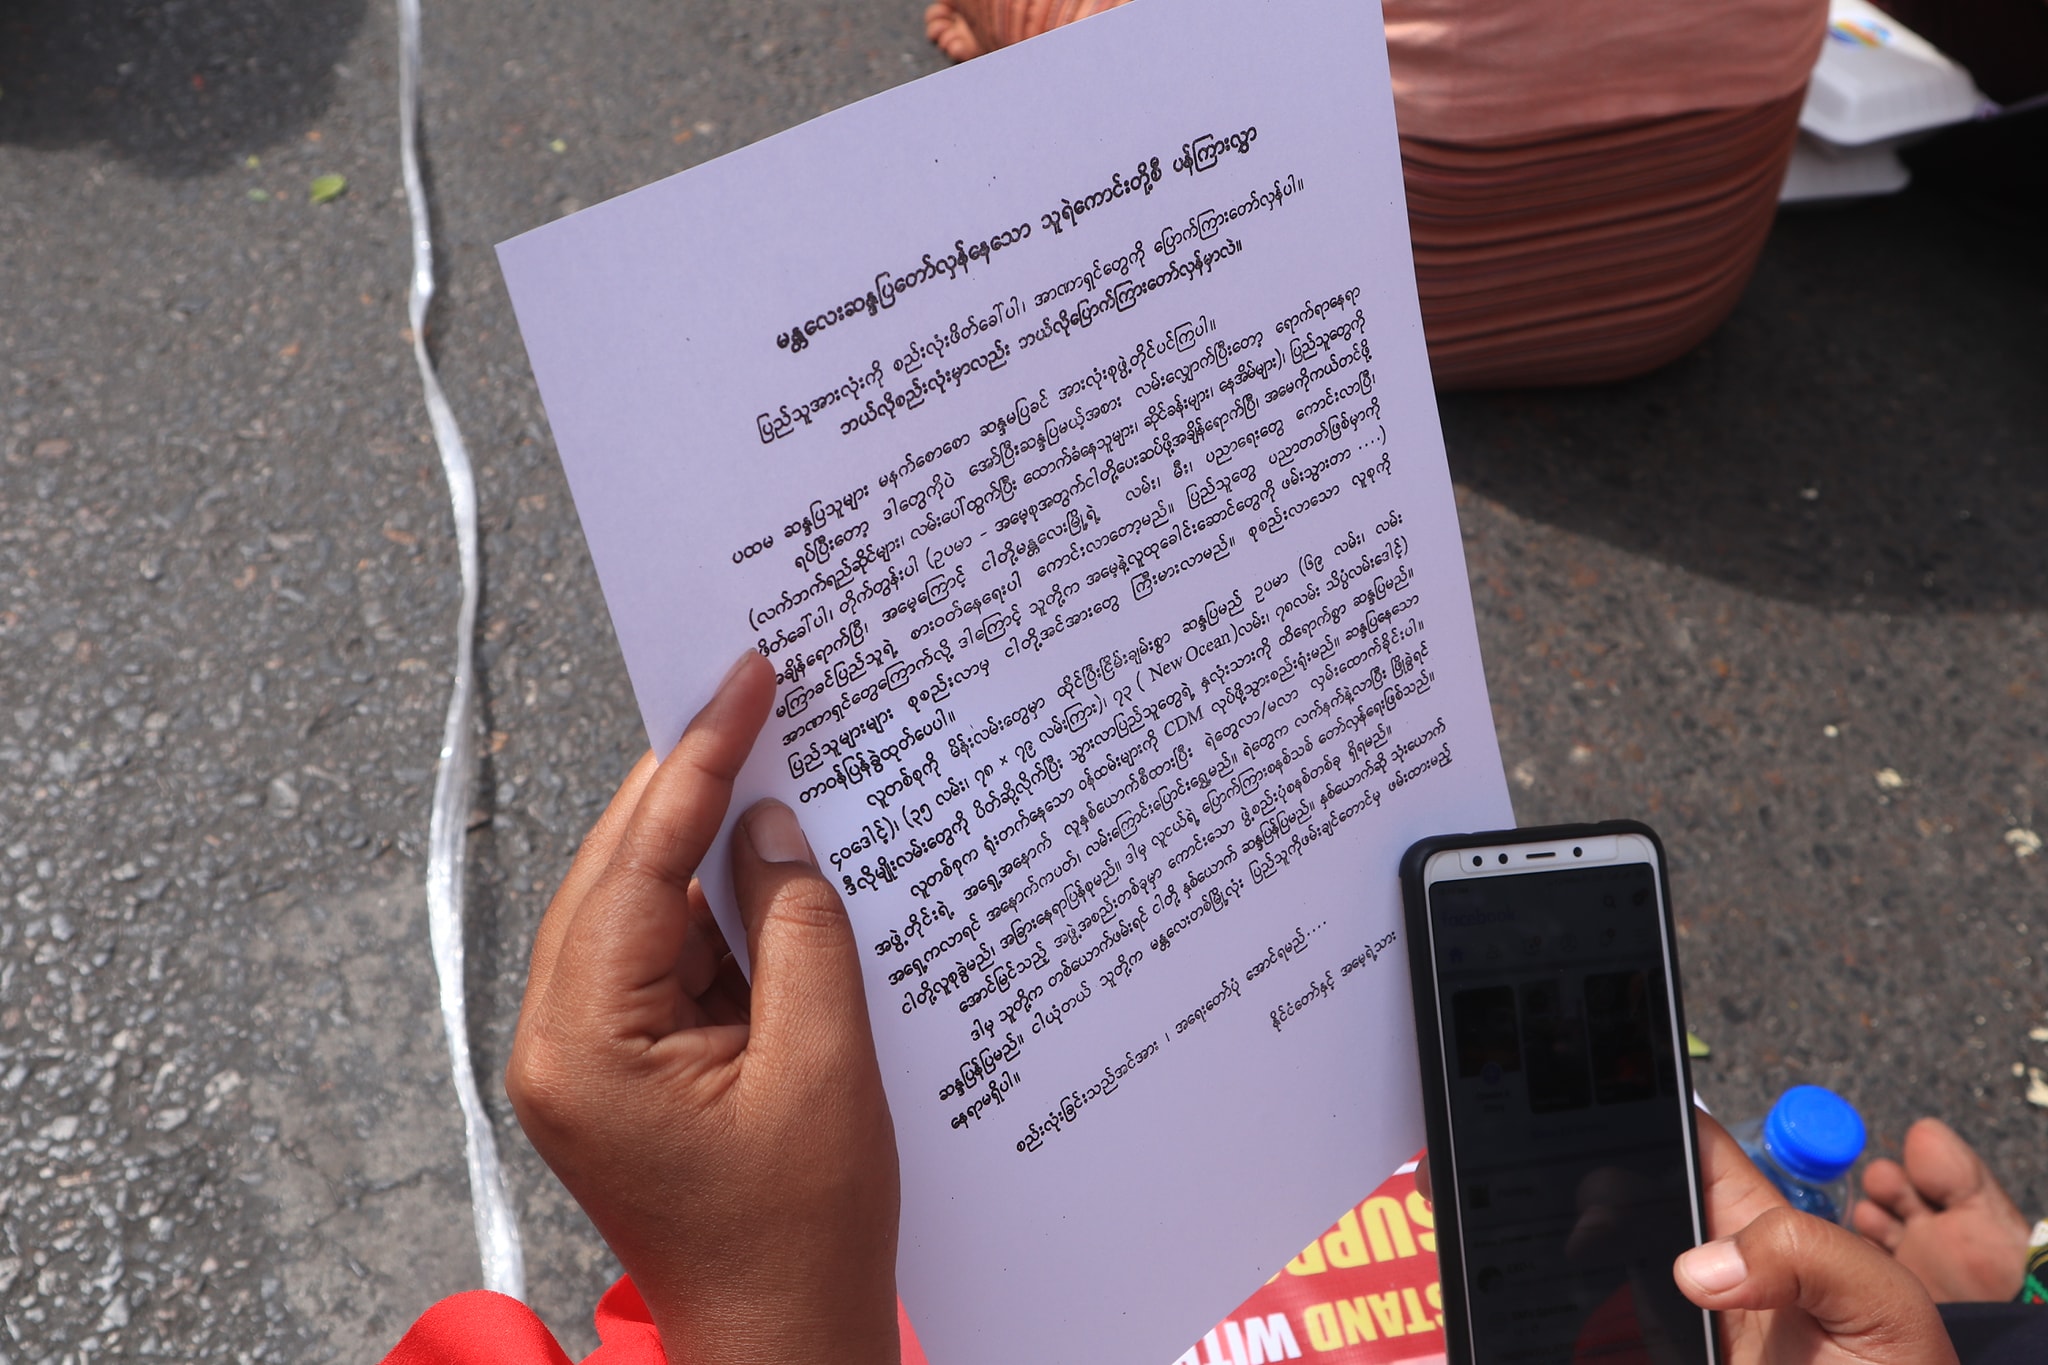 မန္တလေးဆန္ဒပြတော်လှန်နေသော သူရဲကောင်းတို့စီ ပန်ကြားလွှာ
ပြည်သူအားလုံးကို စည်းလုံးဖိတ်ခေါ်ပါ၊ အာဏာရှင်တွေကို ပြောက်ကြားတော်လှန်ပါ။
ဘယ်လိုစည်းလုံးမှာလည်း ဘယ်လိုပြောက်ကြားတော်လှန်မှာလဲ။
ပထမ ဆန္ဒပြသူများ မနက်စောစော ဆန္ဒမပြခင် အားလုံးစုဖွဲ့တိုင်ပင်ကြပါ။
ရပ်ပြီးတော့ ဒါတွေကိုပဲ အော်ပြီးဆန္ဒပြမယ့်အစား လမ်းလျှောက်ပြီးတော့ ရောက်ရာနေရာ
(လက်ဘက်ရည်ဆိုင်များ၊ လမ်းပေါ်ထွက်ပြီး ထောက်ခံနေသူများ၊ ဆိုင်ခန်းများ၊ နေအိမ်များ)၊ ပြည်သူတွေကို
ဖိတ်ခေါ်ပါ၊ တိုက်တွန်းပါ (ဥပမာ - အမေ့စုအတွက်ငါတို့ပေးဆပ်ဖို့အချိန်ရောက်ပြီ၊ အမေကိုကယ်တင်ဖို့
အချိန်ရောက်ပြီ၊ အမေ့ကြောင့် ငါတို့မန္တလေးမြို့ရဲ့ လမ်း၊ မီး၊ ပညာရေးတွေ ကောင်းလာပြီ၊
မကြာခင်ပြည်သူရဲ့ စားဝတ်နေရေးပါ ကောင်းလာတော့မည်။ ပြည်သူတွေ ပညာတတ်ဖြစ်မှာကို
အာဏာရှင်တွေကြောက်လို့ ဒါကြောင့် သူတို့က အမေ့နဲ့လူထုခေါင်းဆောင်တွေကို ဖမ်းသွားတာ ....)
ပြည်သူများများ စုစည်းလာမှ ငါတို့အင်အားတွေ ကြီးမားလာမည်။ စုစည်းလာသော လူစုကို
တာဝန်ပြန်ခွဲထုတ်ပေပါ။
လူတစ်စုကို မိန်းလမ်းတွေမှာ ထိုင်ပြီးငြိမ်းချမ်းစွာ ဆန္ဒပြမည် ဥပမာ (၆၉ လမ်း၊ လမ်း
၄၀ဒေါင့်)၊ (၃၅ လမ်း၊ ၇၈ × ၇၉ လမ်းကြား)၊ ၇၃ ( New Ocean )လမ်း၊ ၇၈လမ်း သိပ္ပံလမ်းဒေါင့်)
ဒီလိုမျိုးလမ်းတွေကို ပိတ်ဆို့လိုက်ပြီး သွားလာပြည်သူတွေရဲ့ နှလုံးသားကို ထိရောက်စွာ ဆန္ဒပြမည်။
လူတစ်စုက ရုံးတက်နေသော ဝန်ထမ်းများကို CDM လုပ်ဖို့သွားစည်းရုံးမည်။ ဆန္ဒပြနေသော
အဖွဲ့တိုင်းရဲ့ အရှေ့အနောက် လူနှစ်ယောက်စီထားပြီး ရဲတွေလာ/မလာ လှမ်းထောက်ခိုင်းပါ။
အရှေ့ကလာရင် အနောက်ကပတ်၊ လမ်းကြောင်းပြောင်းရွှေ့မည်။ ရဲတွေက လက်နက်နဲ့လာပြီး ဖြိုခွဲရင်
ငါတို့လူစုခွဲမည်၊ အခြားနေရာပြန်စုမည်။ ဒါမှ လူငယ်ရဲ့ ပြောက်ကြားစနစ်သစ် တော်လှန်ရေးဖြစ်သည်။
အောင်မြင်သည့် အဖွဲ့အစည်းတစ်ခုမှာ ကောင်းသော ဖွဲ့စည်းပုံစနစ်တစ်ခု ရှိရမည်။
ဒါမှ သူတို့က တစ်ယောက်ဖမ်းရင် ငါတို့ နှစ်ယောက် ဆန္ဒပြန်ပြမည်။ နှစ်ယောက်ဆို သုံးယောက်
ဆန္ဒပြန်ပြမည်။ ငါယုံတယ် သူတို့က မန္တလေးတစ်မြို့လုံး ပြည်သူကိုဖမ်းချင်တောင်မှ ဖမ်းထားမည့်
နေရာမရှိပါ။
စည်းလုံးခြင်းသည်အင်အား ၊ အရေးတော်ပုံ အောင်ရမည်....
နိုင်ငံတော်နှင့် အမေ့ရဲ့သား
facebook
STAND WITH
SUPPO